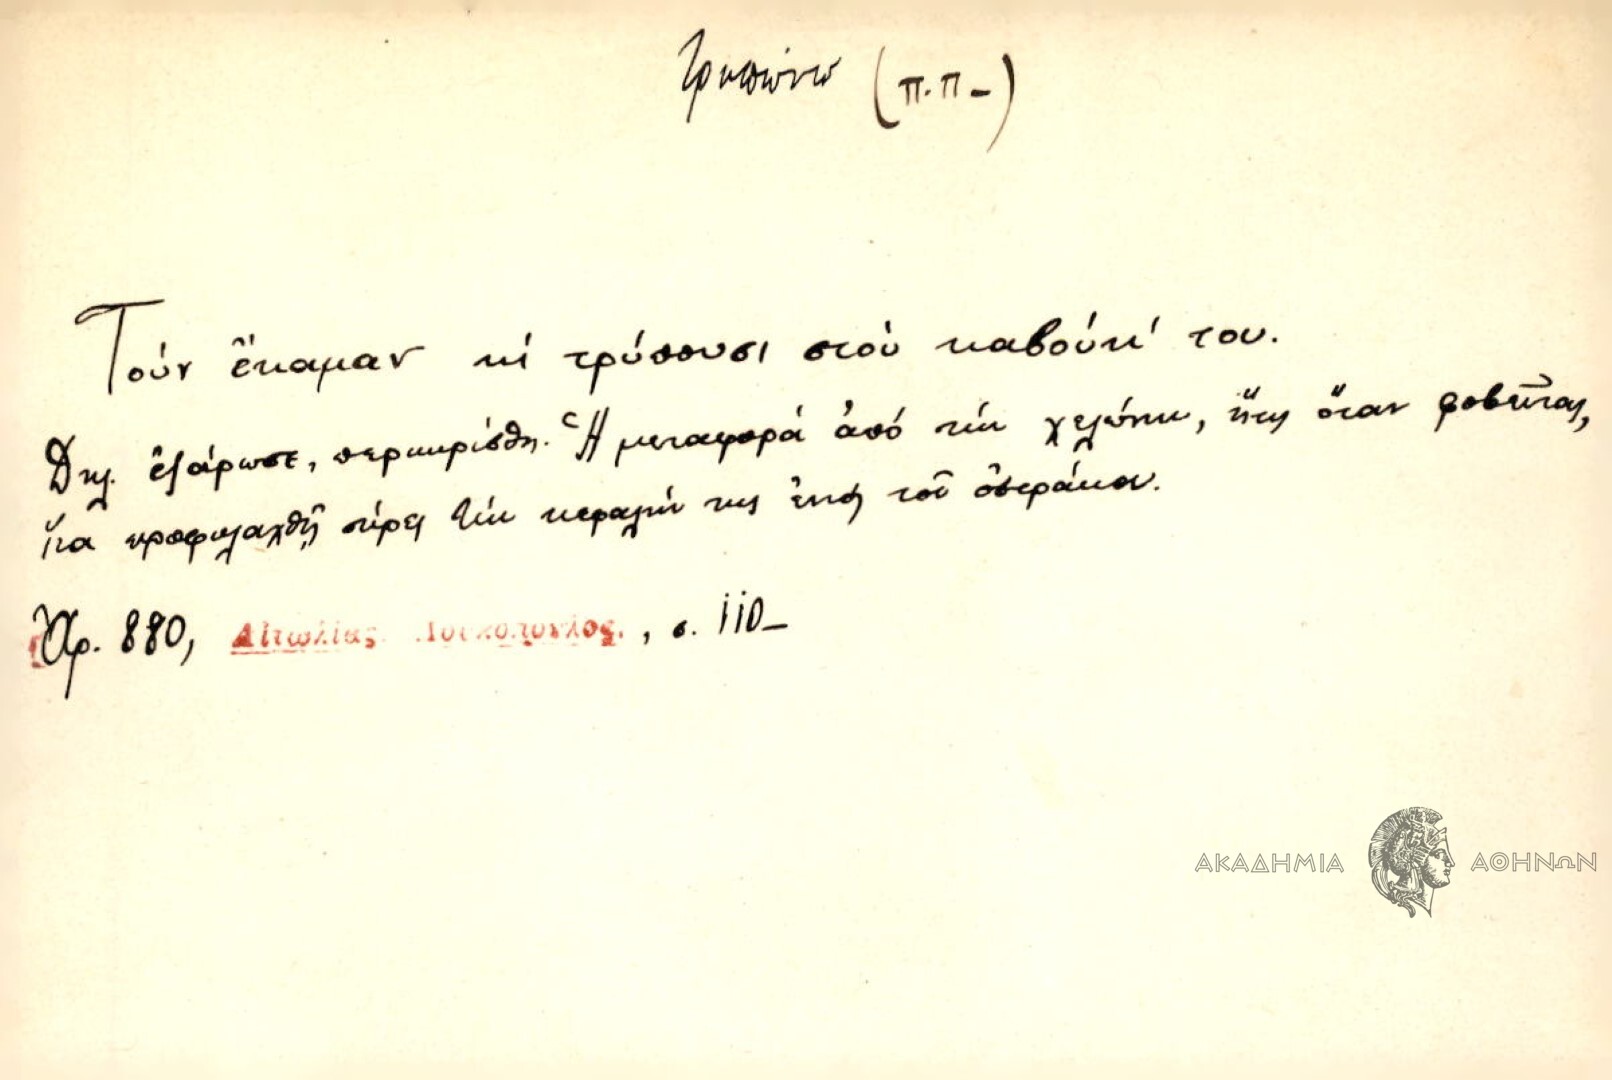 τρυπώνω (π.π-)
Τούν ἔκαμαν κί τρύπουσι στού καβούκι του.
Δηλ. ἐζάρωσε, περιωρίσθη. Ἡ μεταφορά ἀπό τήν χελώνην, ἥτις ὅταν φοβῆται,
ἵνα προφυλαχθῇ σύρει τήν κεφαλήν της ἐντός τοῦ ὀστράκου.
Ἀρ. 880, Αἰτωλίας Λουκόπουλος, σ. 110-
ΑΚΑΔΗΜΙΑ ΑΘΗΝΩΝ